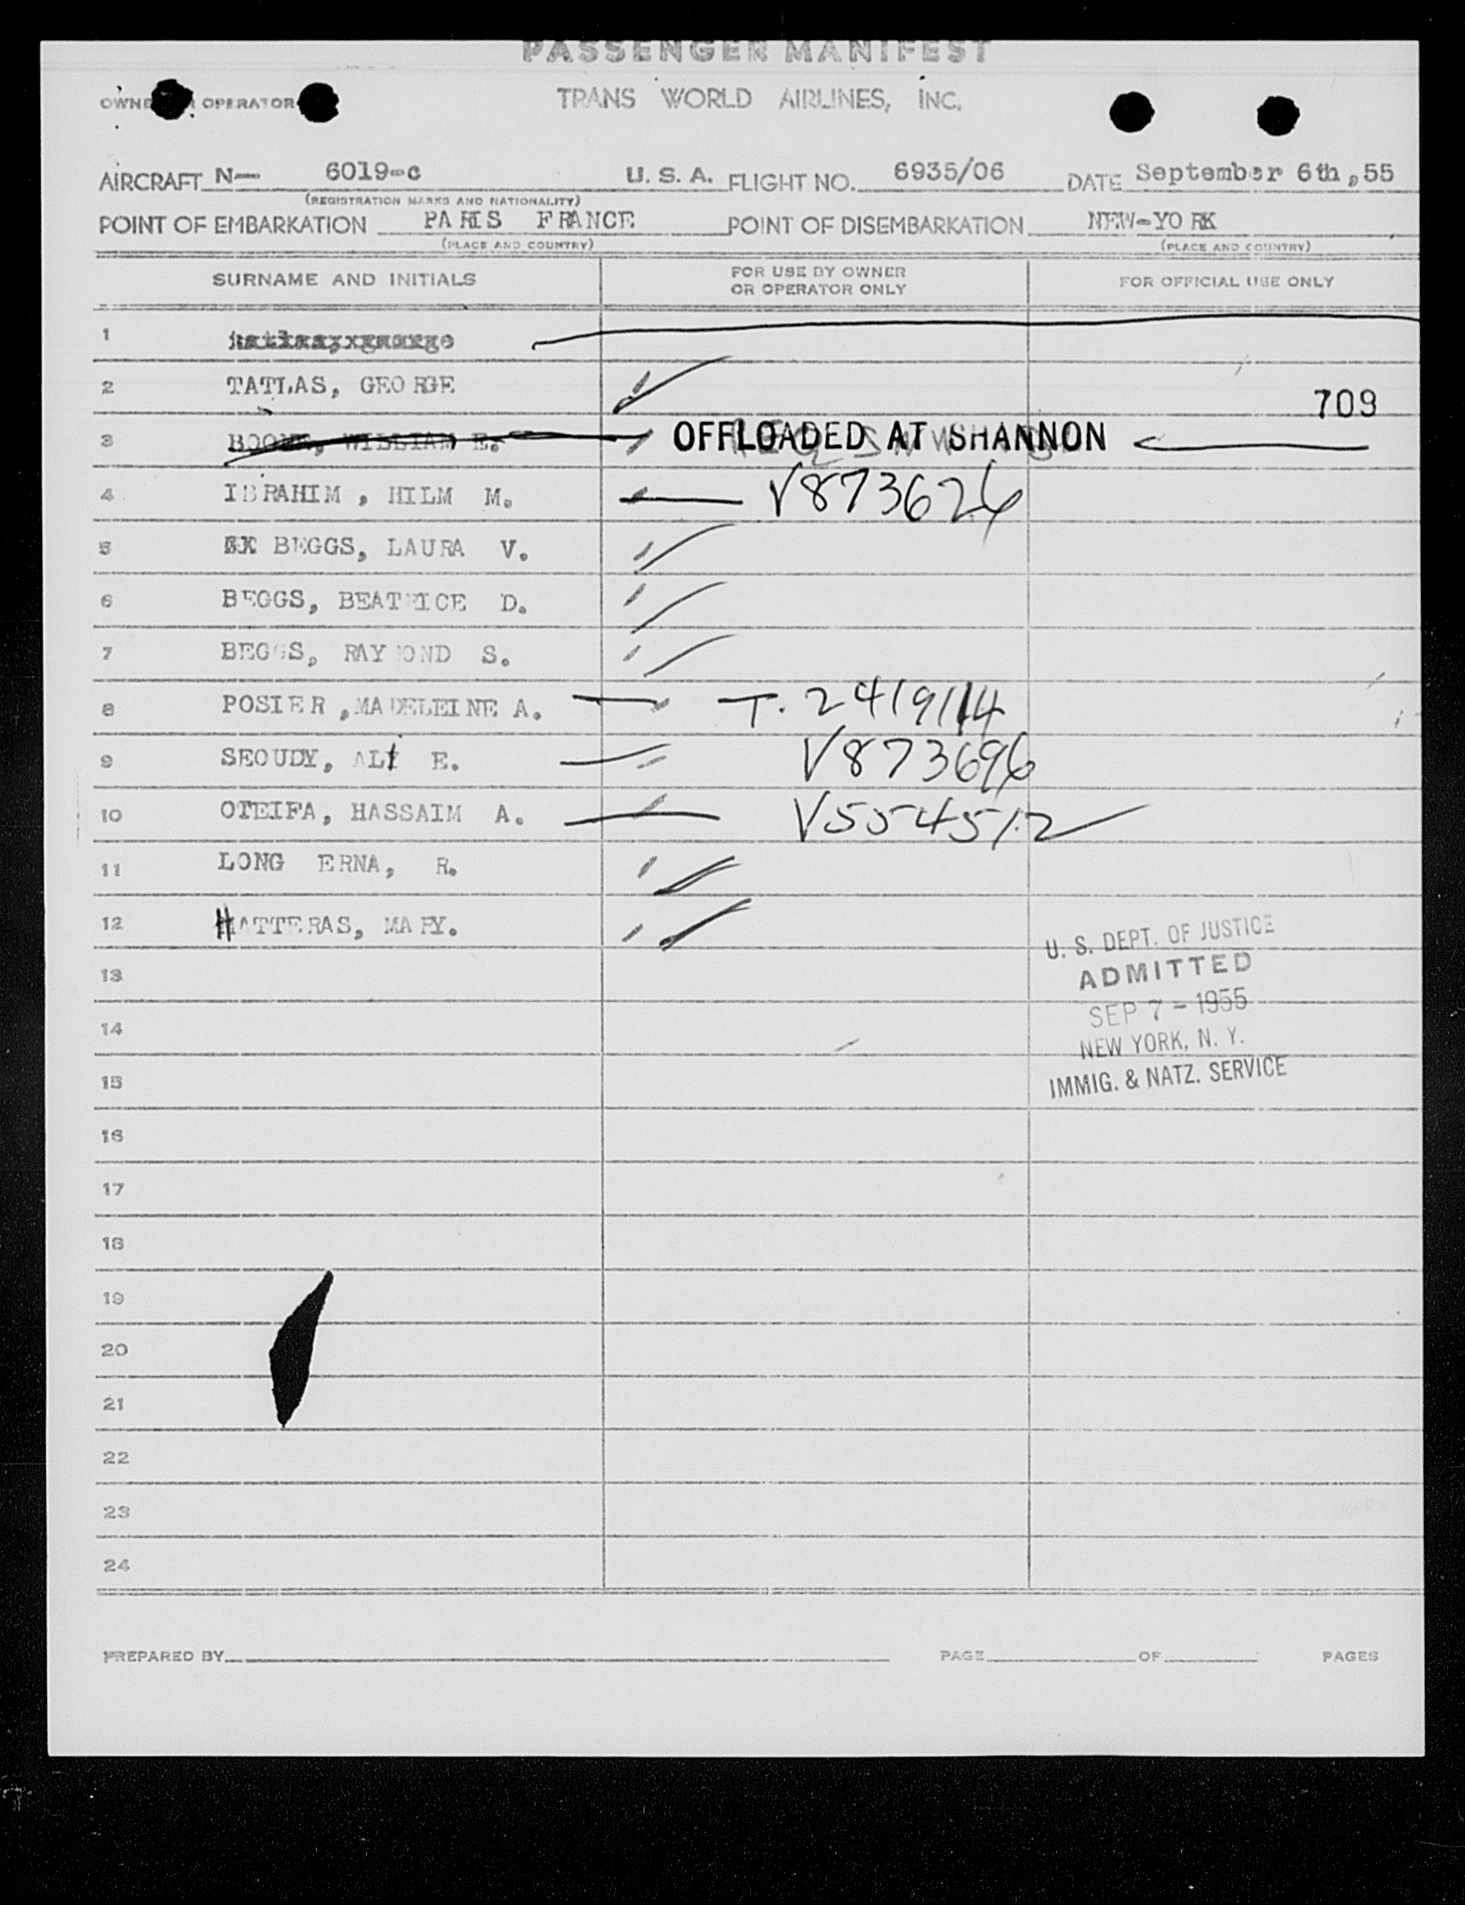 PASSENGER MANIFEST
OPERATOR TRANS WORLD AIRLINES, INC.
AIRCRAFT N- 6019-c U. S. A. FLIGHT NO. 6935/06 DATE September 6th,55
(REGISTRATION MARKS AND NATIONALITY)
POINT OF EMBARKATION PARIS FRANCE POINT OF DISEMBARKATION NEW-YORK
(PLACE AND COUNTRY) (PLACE AND COUNTRY)
SURNAME AND INITIALS FOR USE BY OWNER OR OPERATOR ONLY FOR OFFICIAL USE ONLY
1
2 TATLAS, GEORGE 709
3 WILLIAM E. OFFLOADED AT SHANNON
4 IBRAHIM , HILM M. V873626
5 BEGGS, LAURA V.
6 BEGGS, BEATRICE D.
7 BEGGS, RAYMOND S.
8 POSIER ,MADELEINE A. T. 2419114
9 SEOUDY, ALI E. V873696
10 OTEIFA, HASSAIM A. V554512
11 LONG ERNA, R.
12 HATTERAS, MARY.
U. S. DEPT. OF JUSTICE
13
ADMITTED
SEP 7 - 1955
14
NEW YORK, N. Y.
15
IMMIG. & NATZ. SERVICE
16
17
18
19
20
21
22
23
24
PREPARED BY PAGE OF PAGES